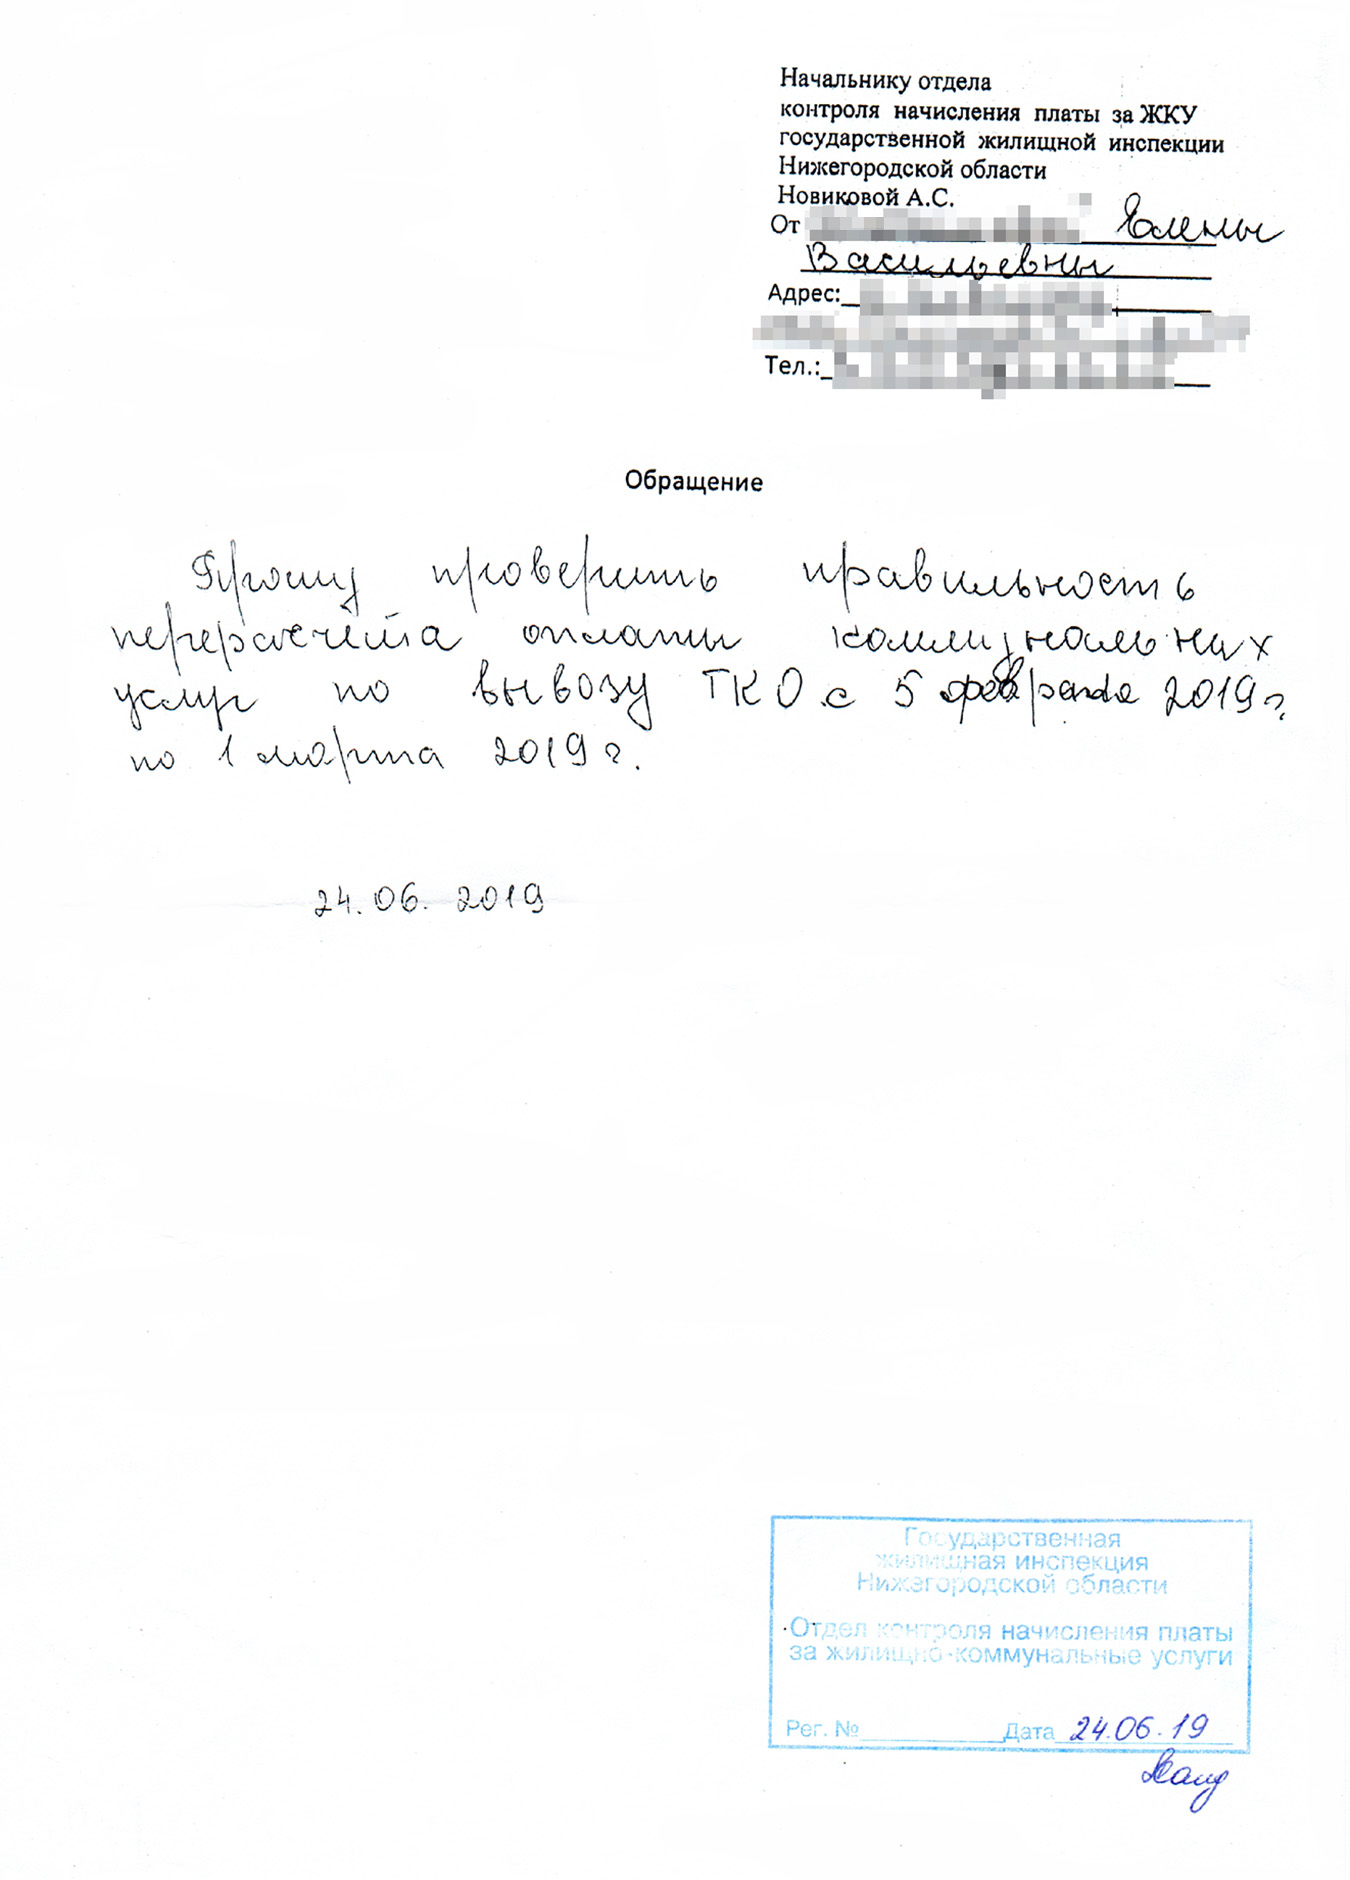 Начальнику отдела
контроля начисления платы за ЖКУ
государственной жилищной инспекции
Нижегородской области
Новиковой А.С.
От Елены
Васильевны
Адрес:
Тел.:
Обращение
Прошу проверить правильность
перерасчёта оплаты коммунальных
услуг по вывозу ТКО с 5 февраля 2019 г.
по 1 марта 2019 г.
24.06.2019
Государственная
жилищная инспекция
Нижегородской области
Отдел контроля начисления платы
за жилищно-коммунальные услуги
Рег. № Дата 24.06.19